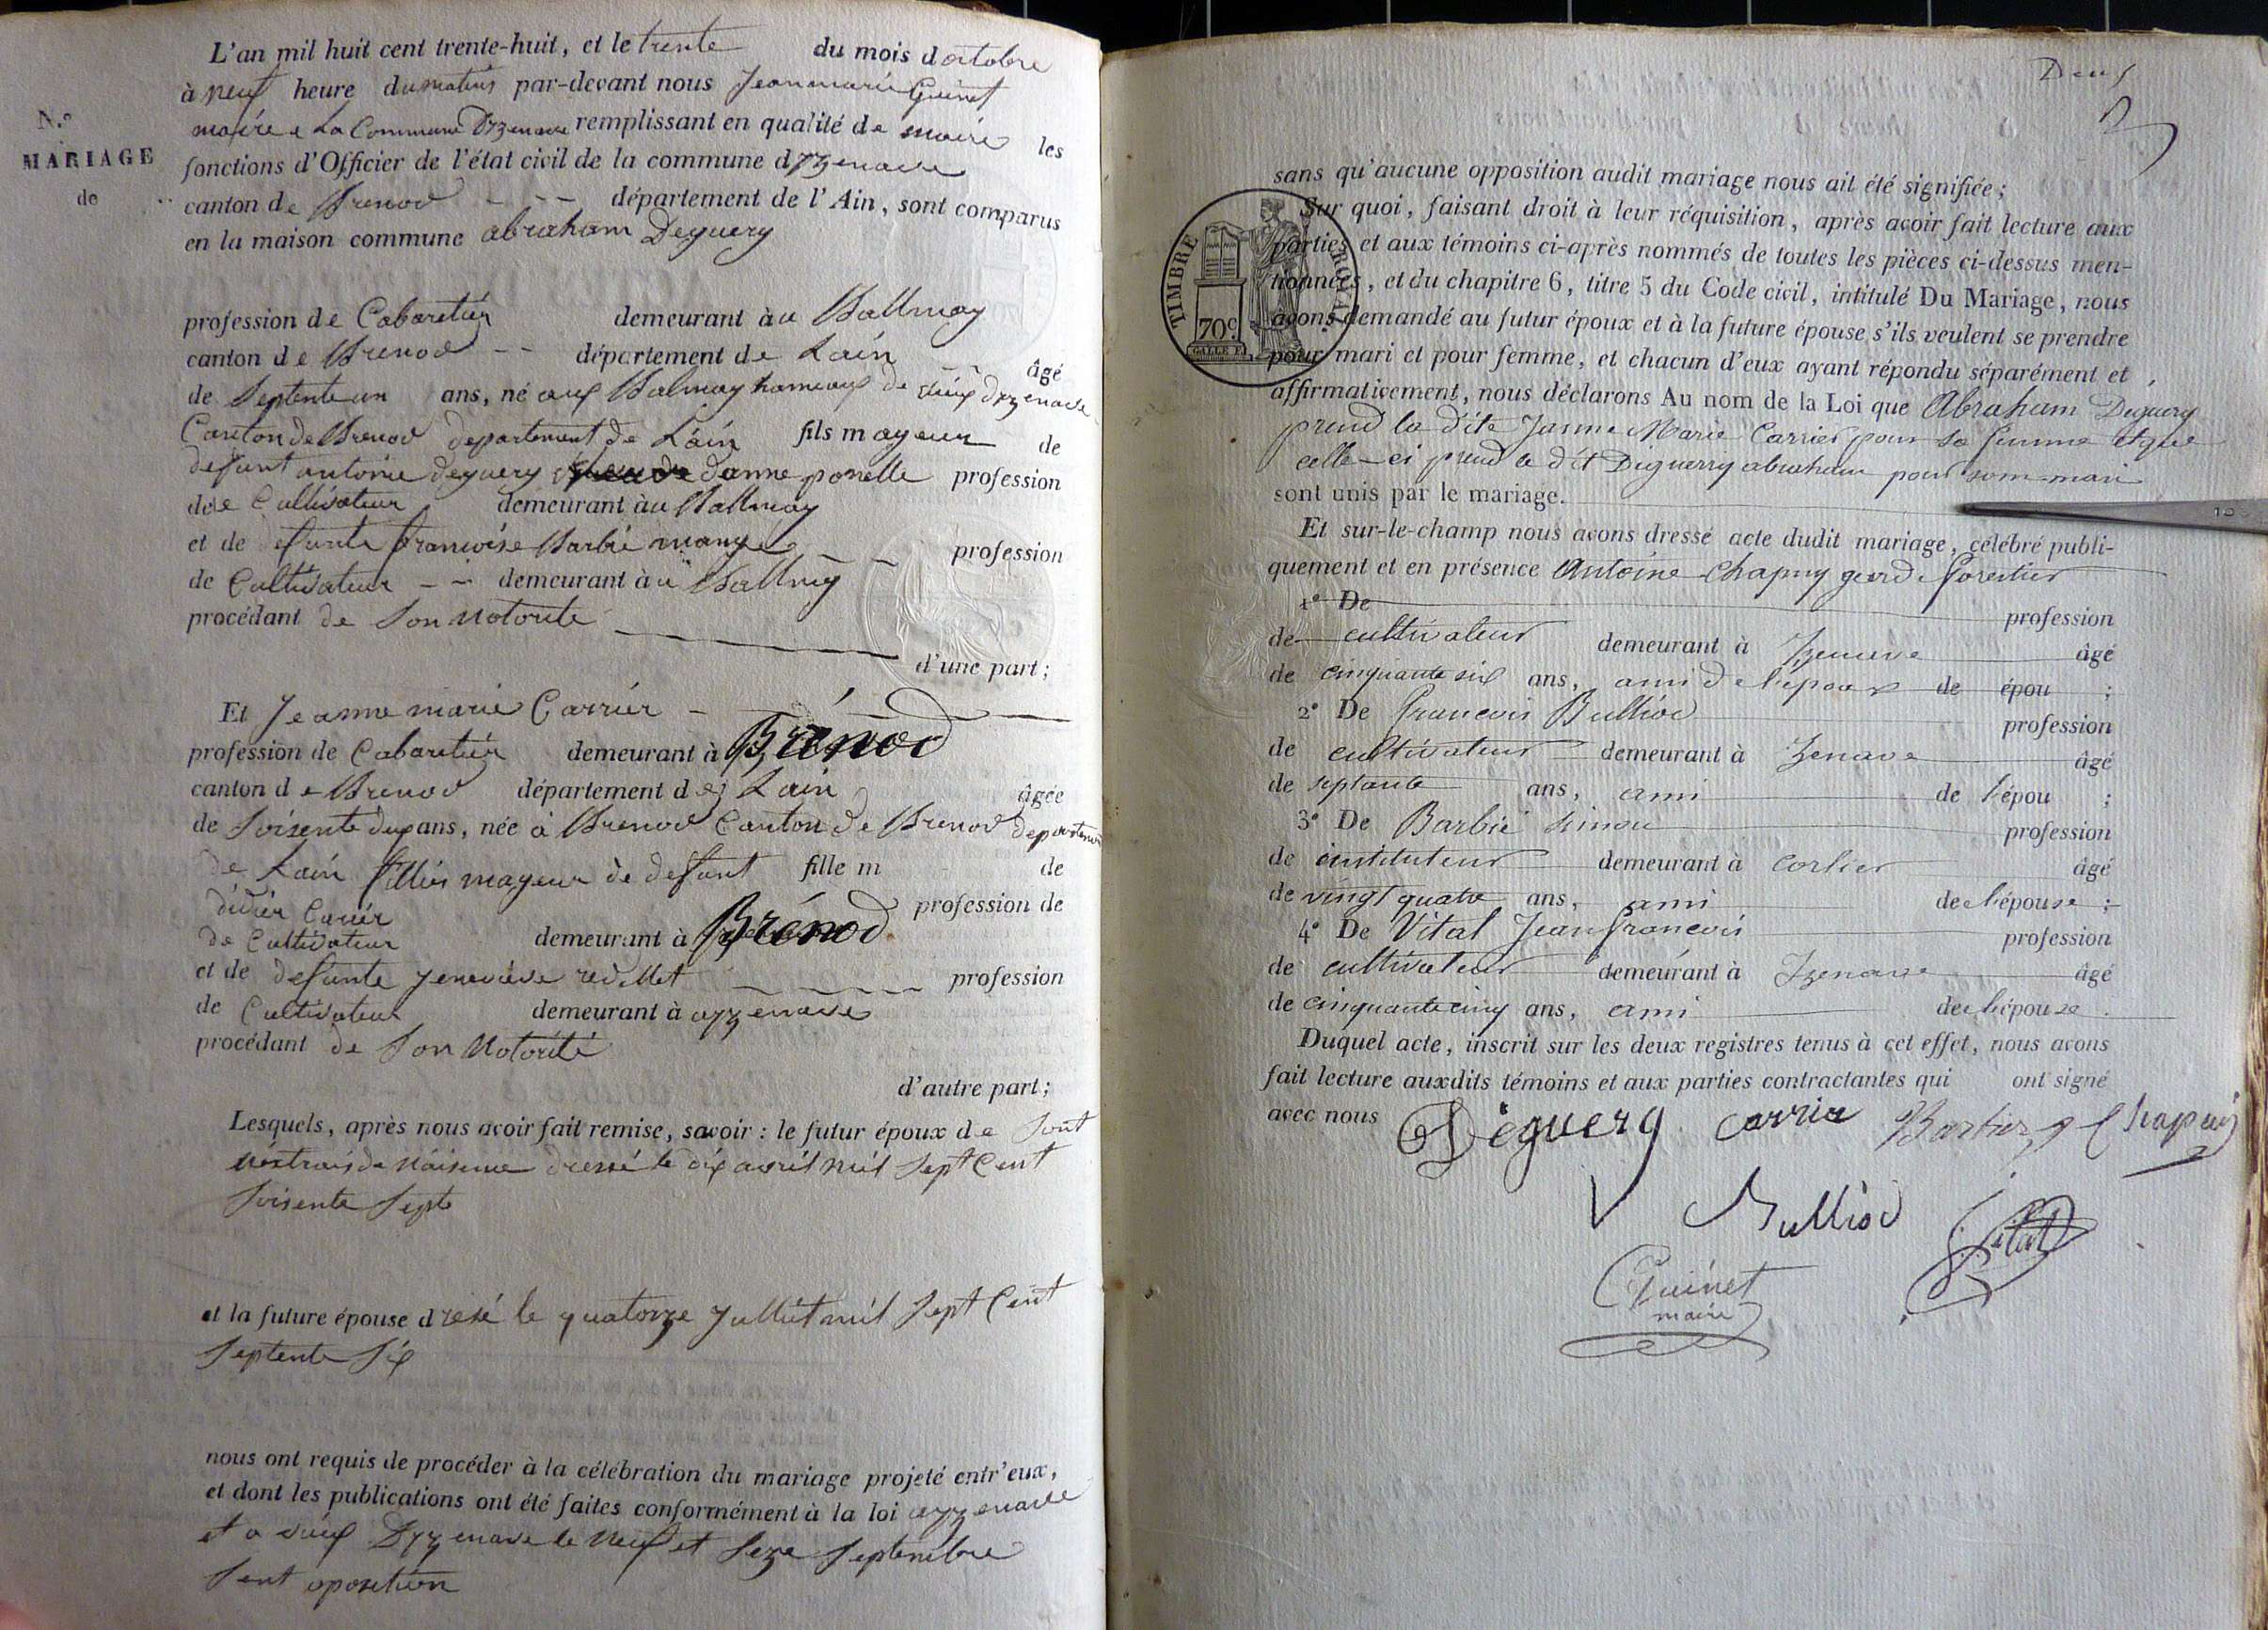 L'an mil huit cent trente-huit, et le trente du mois d octobre
à neuf heure du matin par-devant nous Jean marie Guinet
N.o
MARIAGE
de
maire e La Commune Dyzenave remplissant en qualité de maire les
fonctions d'Officier de l'état civil de la commune dyzenave
canton de Brenod - - - département de l'Ain, sont comparus
en la maison commune abraham Deguery
profession de Cabaretier demeurant à u Ballmay
canton de Brenod - - département de Lain âgé
de Septente un ans, né aux Balmay hameaux de vieux dyzenave
Canton de Brenod departement de Lain fils mayeur de
defunt antoine deguery danne ponelle profession
de e Cultivateur demeurant àu Ballmay
et de defunte francoise Barbie profession
de Cultivateur - - demeurant à u Ballmy
procédant de Son Notorite
d'une part;
Et Jeanne marie Carrier
profession de Cabaretier demeurant à Brénod
canton d e Brenod département de Lain âgée
de Soisente dux ans, née à Brenod Canton de Brenod departement
de Lain fillies mayeur de defunt fille m de
didier Carier profession de
de Cultivateur demeurant à Brénod
et de defunte Jenevieve revillet profession
de Cultivateur demeurant à ayzenave
procédant de Son Notorité
d'autre part;
Lesquels, après nous avoir fait remise, savoir: le futur époux de Sont
dressé le dix avril mil Sept Cent
Soisente Septe
et la future épouse d resé le quatorze Julliet mil Sept Cent
Septente Six
nous ont requis de procéder à la célébration du mariage projeté entr'eux,
et dont les publications ont été faites conformément à la loi ayzenave
et a vieux Dyzenave le Neuf et Seze Septembre
Sent oposition
Deux
sans qu'aucune opposition audit mariage nous ait été signifiée;
Sur quoi, faisant droit à leur réquisition, après avoir fait lecture aux
parties et aux témoins ci-après nommés de toutes les pièces ci-dessus men-
tionnées, et du chapitre 6, titre 5 du Code civil, intitulé Du Mariage, nous
avons demandé au futur époux et à la future épouse s'ils veulent se prendre
pour mari et pour femme, et chacun d'eux ayant répondu séparément et
affirmativement, nous déclarons Au nom de la Loi que Abraham Deguery
prend la dite Janne Marie Carrier pour sa femme et que
celle-ci prend le dit Deguerry abraham pour som mari
sont unis par le mariage.
TIMBRE ROYAL
70c
Et sur-le-champ nous avons dressé acte dudit mariage, célébré publi-
quement et en présence Antoine Chapuy garde forestier
1° De profession
de cultivateur demeurant à Izenave âgé
de cinquante six ans, ami de l'époux de épou ;
2° De Francois Bulliod profession
de cultivateur demeurant à Izenave âgé
de septante ans, ami de l'épou ;
3° De Barbié simon profession
de instituteur demeurant à corlier âgé
de vingt quatre ans, ami de l'épouse ;
4° De Vital Jean francois profession
de cultivateur demeurant à Izenave âgé
de cinquante cinq ans, ami de l'épouse.
Duquel acte, inscrit sur les deux registres tenus à cet effet, nous avons
fait lecture auxdits témoins et aux parties contractantes qui ont signé
avec nous Déguery carrier Barbier Chapuy
Bulliod Vital
Guinet
maire